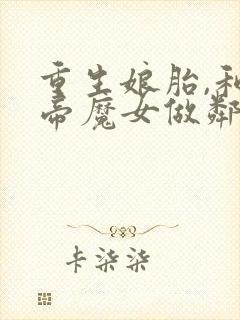 重生娘胎,和
帝魔女做鄰
卡柒柒